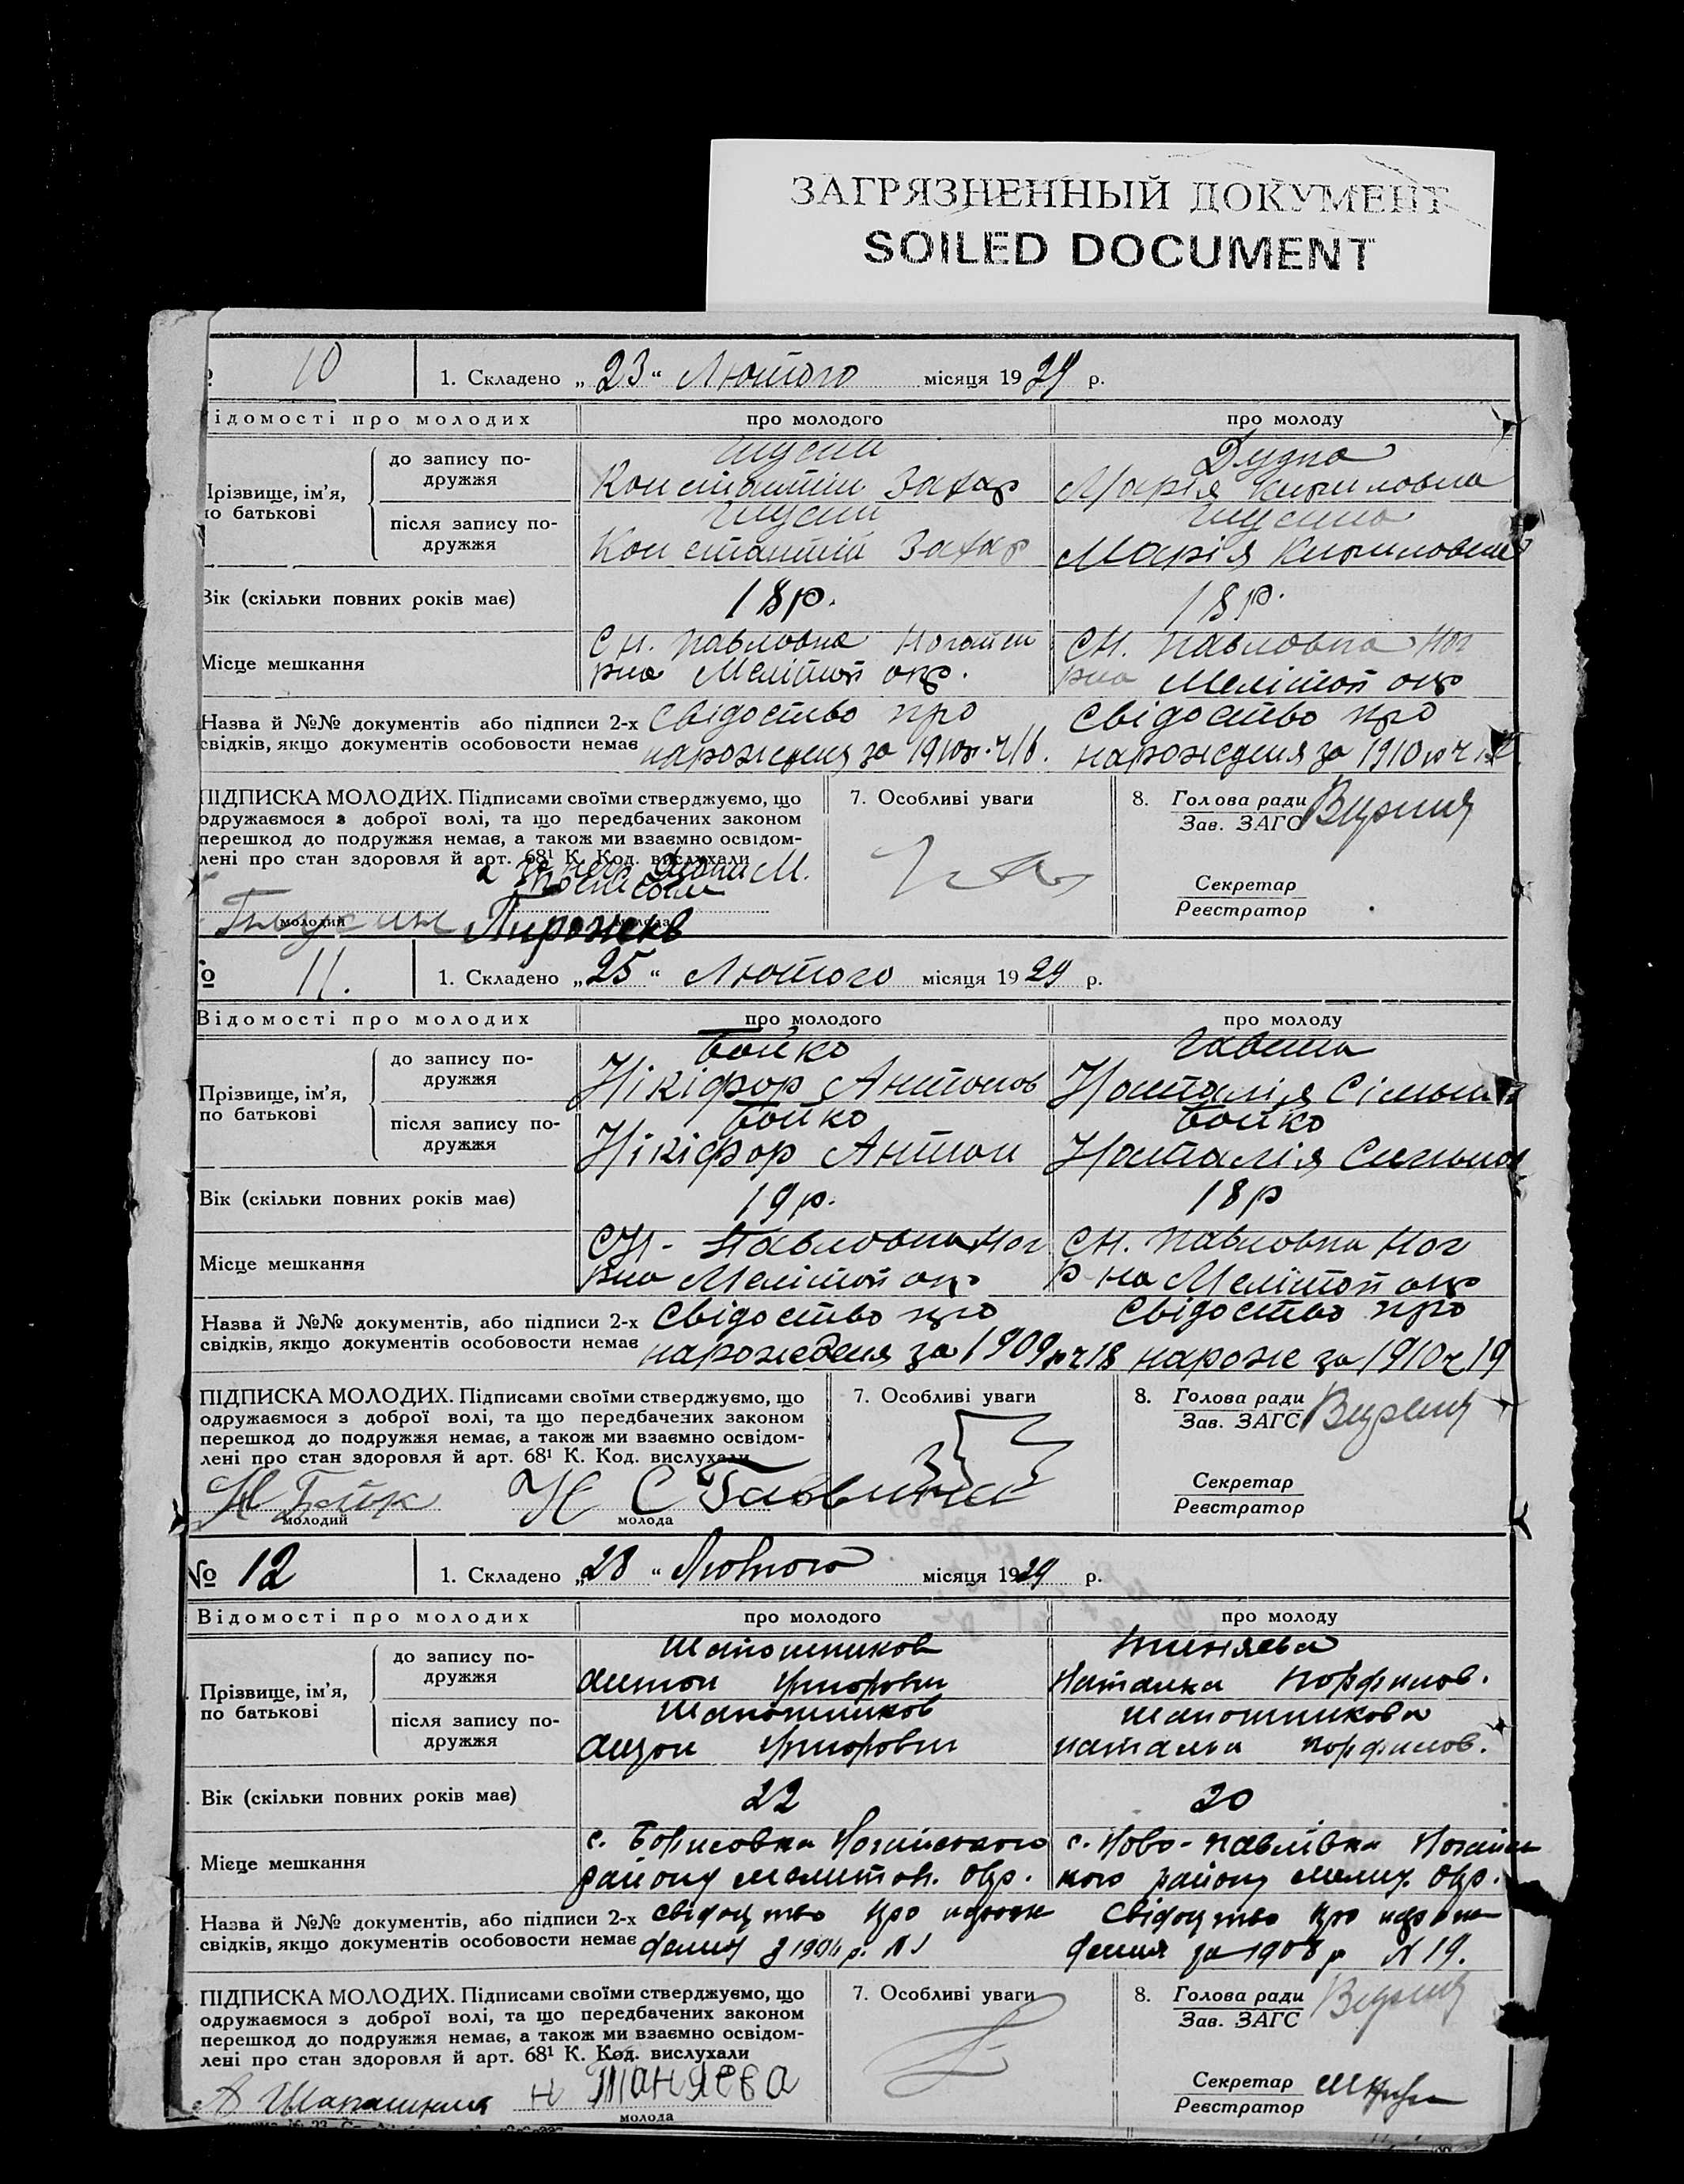 ЗАГРЯЗНЕННЫЙ ДОКУМЕНТ
SOILED DOCUMENT
10
1. Складено „ 23 “ Лютого місяця 1929 р.
ідомості про молодих
про молодого
про молоду
Прізвище, ім’я,
по батькові
до запису по-
дружжя
Константін Захар
Дудка
Марія Кириловна
після запису по-
дружжя
Константін Захар
Марія Кириловна
Вік (скільки повних років має)
18 р.
18 р.
Місце мешкання
с Н. Павловка Ногайск
рна Мелітоп окр.
с Н. Павловка Ног
рна Мелітоп окр
Назва й №№ документів або підписи 2-х
свідків, якщо документів особовости немає
Свідоство про
нарожденя за 1910р. ч 16.
Свідоство про
нарожденя за 1910 р ч
ПІДПИСКА МОЛОДИХ. Підписами своїми стверджуємо, що
одружаємося з доброї волі, та що передбачених законом
перешкод до подружжя немає, а також ми взаємно освідом-
лені про стан здоровля й арт. 68¹ К. Код. вислухали
молодий
7. Особливі уваги
8. Голова ради
Зав. ЗАГС
Секретар
Реєстратор
№ 11.
1. Складено „ 25 “ Лютого місяця 1929 р.
Відомості про молодих
про молодого
про молоду
Прізвище, ім’я,
по батькові
до запису по-
дружжя
Бойко
Нікіфор Антонов
Наталія
після запису по-
дружжя
Бойко
Нікіфор Антон
Бойко
Наталія
Вік (скільки повних років має)
19 р.
18 р
Місце мешкання
с Н - Павловка Ног
рна Мелітоп окр
с Н. Павловка Ног
р-на Мелітоп окр
Назва й №№ документів, або підписи 2-х
свідків, якщо документів особовости немає
Свідоство про
нарожденя за 1909 р ч 18
Свідоство про
нарожс за 1910 ч 19
ПІДПИСКА МОЛОДИХ. Підписами своїми стверджуємо, що
одружаємося з доброї волі, та що передбачених законом
перешкод до подружжя немає, а також ми взаємно освідом-
лені про стан здоровля й арт. 68¹ К. Код. вислухали
молодий
молода
7. Особливі уваги
8. Голова ради
Зав. ЗАГС
Секретар
Реєстратор
№ 12
1. Складено „ 28 “ Лютого місяця 1929 р.
Відомості про молодих
про молодого
про молоду
Прізвище, ім’я,
по батькові
до запису по-
дружжя
Шапошников
Антон
Наталка Порфилов.
після запису по-
дружжя
Шапошников
Шапошникова
Наталка Порфилов.
Вік (скільки повних років має)
22
20
Місце мешкання
с. Борисовка Ногайського
району мелитоп. окр.
с. Ново-Павлівка Ногайсь
кого району мелит. окр.
Назва й №№ документів, або підписи 2-х
свідків, якщо документів особовости немає
Свідоцтво про
Свідоцтво про
дения за 1908 р N 19.
ПІДПИСКА МОЛОДИХ. Підписами своїми стверджуємо, що
одружаємося з доброї волі, та що передбачених законом
перешкод до подружжя немає, а також ми взаємно освідом-
лені про стан здоровля й арт. 68¹ К. Код. вислухали
Н ТІАНЯЕВА
молода
7. Особливі уваги
8. Голова ради
Зав. ЗАГС
Секретар
Реєстратор